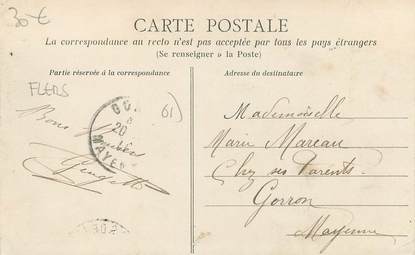 30€
CARTE POSTALE
La correspondance au recto n'est pas acceptée par tous les pays étrangers
(Se renseigner à la Poste)
Partie réservée à la correspondance
Adresse du destinataire
FLERS
61)
Bons
20
MAYEN
Mademoiselle
Marie Mareau
Chez ses Parents
Gorron
Mayenne